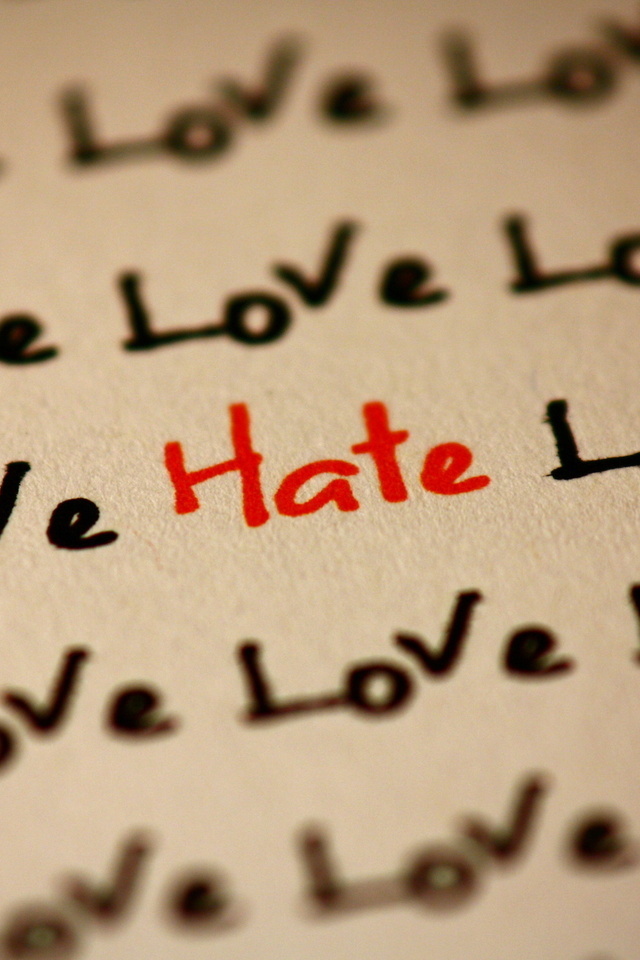 Love Lov
e Love Lo
ve Hate L
ove Love L
ove Love